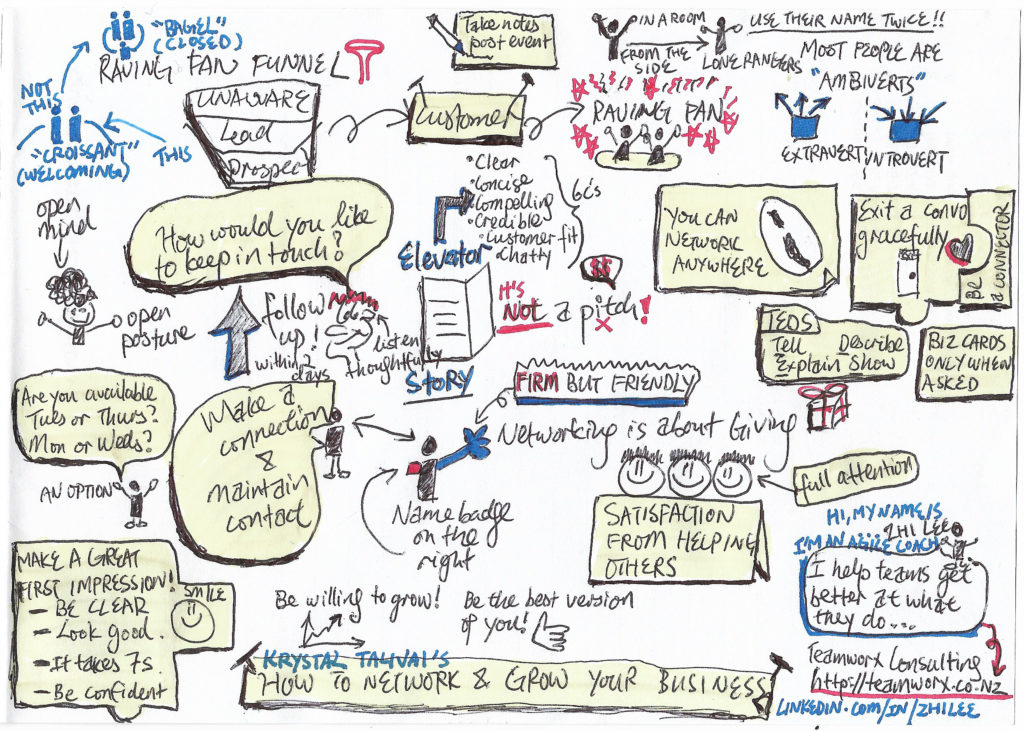 "BAGEL"
(CLOSED)
RAVING FAN FUNNEL
NOT
THIS
"CROISSANT"
(WELCOMING)
THIS
UNAWARE
Lead
Prospect
Customer
RAVING FAN
Take notes
post event
IN A ROOM
FROM THE
SIDE
LONE RANGERS
USE THEIR NAME TWICE!!
MOST PEOPLE ARE
"AMBIVERTS"
EXTRAVERT
INTROVERT
open
mind
open
posture
How would you like
to keep in touch?
follow
up!
within 2
days
listen
thoughtfully
• Clear
• Concise
• Compelling
• Credible
• Customer fit
• Chatty
6c's
Elevator
STORY
$$
IT'S
NOT a pitch!
YOU CAN
NETWORK
ANYWHERE
Exit a convo
gracefully
BE
a CONNECTOR
TEDS
Tell Describe
Explain Show
BIZ CARDS
ONLY WHEN
ASKED
FIRM BUT FRIENDLY
Are you available
Tues or Thurs?
Mon or Weds?
AN OPTION
Make a
connection
&
maintain
contact
Name badge
on the
right
Networking is about Giving
full attention
SATISFACTION
FROM HELPING
OTHERS
HI, MY NAME IS
ZHI LEE
I'M AN AGILE COACH
I help teams get
better at what
they do....
Teamworx Consulting
http://teamworx.co.nz
LINKEDIN.COM/IN/ZHILEE
MAKE A GREAT
FIRST IMPRESSION!
- BE CLEAR
- Look good.
- It takes 7s.
- Be confident
SMILE
Be willing to grow!
Be the best version
of you!
KRYSTAL TALIVAI'S
HOW TO NETWORK & GROW YOUR BUSINESS